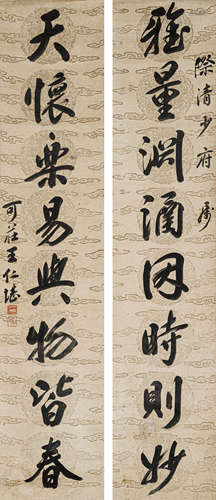 際清少府屬
雅量淵涵因時則妙
天懷樂易與物皆春
可莊王仁堪